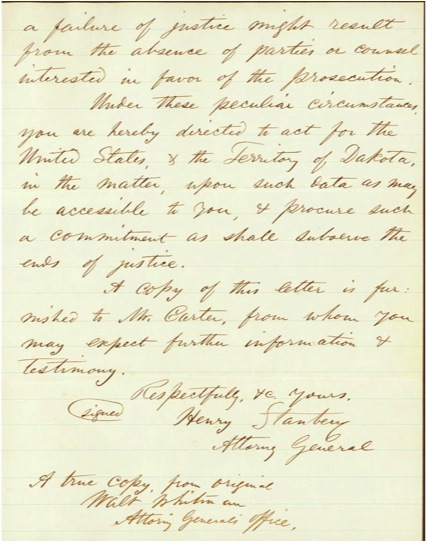 a failure of justice might result
from the absence of parties or counsel
interested in favor of the prosecution.
Under these peculiar circumstances,
you are hereby directed to act for the
United States, & the Territory of Dakota,
in the matter, upon such data as may
be accessible to you, & procure such
a commitment as shall subserve the
ends of justice.
A copy of this letter is fur:
nished to Mr. Carter, from whom you
may expect further information &
testimony.
Respectfully, &c yours.
(signed) Henry Stanbery
Attorney General
A true copy, from original
Walt Whitman
Attorney General's Office.